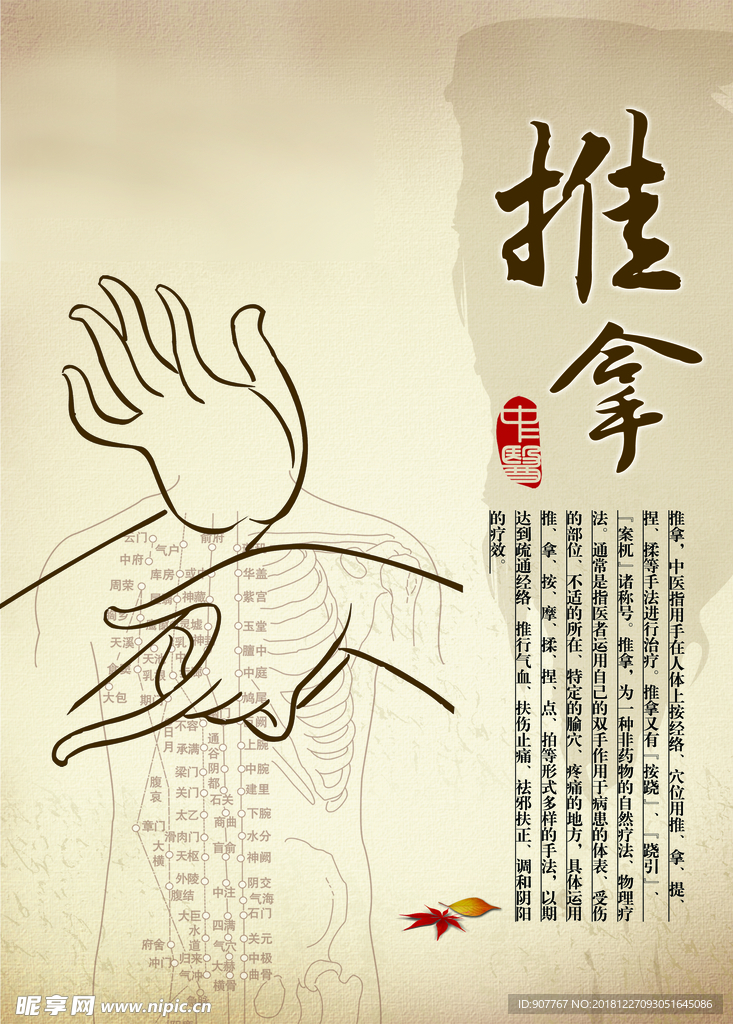 推拿
中醫
推拿，中医指用手在人体上按经络、穴位用推、拿、提、
捏、揉等手法进行治疗。推拿又有『按跷』、『跷引』、
『案杌』诸称号。推拿，为一种非药物的自然疗法、物理疗
法。通常是指医者运用自己的双手作用于病患的体表、受伤
的部位、不适的所在、特定的腧穴、疼痛的地方，具体运用
推、拿、按、摩、揉、捏、点、拍等形式多样的手法，以期
达到疏通经络、推行气血、扶伤止痛、祛邪扶正、调和阴阳
的疗效。
云门
气户
俞府
中府
库房
华盖
周荣
神藏
紫宫
天溪
玉堂
膻中
天池
中庭
大包
乳根
鸠尾
期门
日月
不容
承满
通谷
上脘
梁门
阴都
中脘
腹哀
关门
石关
建里
章门
太乙
商曲
下脘
大横
滑肉门
水分
天枢
肓俞
神阙
外陵
阴交
腹结
中注
气海
大巨
石门
水道
四满
府舍
气穴
关元
冲门
归来
大赫
中极
气冲
横骨
曲骨
昵享网 www.nipic.cn
ID:907767 NO:20181227093051645086